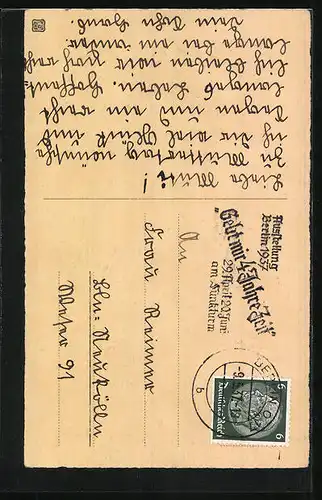 Liebe Mutti!
Zu Muttertag wünsche
ich dir viel Glück und
Segen und ein recht
langes Leben. Hoffent-
lich bleiben wir noch recht
lange bei ein ander.
Dein Sohn
Ausstellung
Berlin 1937
"Gebt mir 4 Jahre Zeit"
29. April-20. Juni
am Funkturm
An
Frau Reimer
Bln-Neukölln
Weser 91
BERLIN
b
6 6
Deutsches Reich